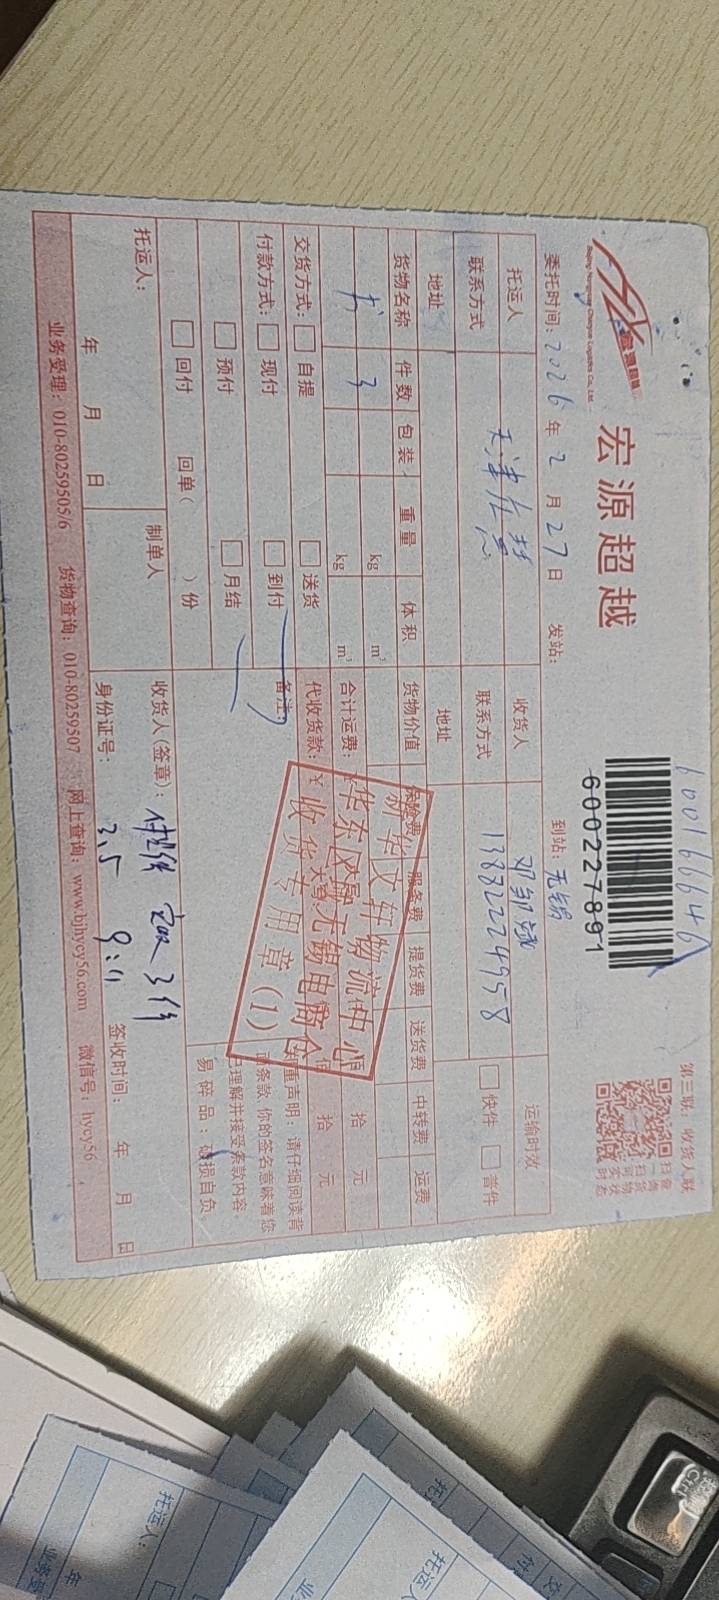 600166646
第三联：收货人联
宏源超越
Beijing Hongyuan Chaoyue Logistics Co., Ltd.
600227891
扫一扫可
查货物实时状态
委托时间：2026年2月27日 发站： 到站：无锡
托运人 天津
收货人
运输时效
联系方式
联系方式 13882224958
快件 普件
地址
地址
货物名称 件数 包装 重量 体积 货物价值 保险费 服务费 提货费 送货费 中转费 运费
书 3 kg m³
kg m³
合计运费：¥ 拾 元
交货方式： 自提 送货
代收货款：¥ 拾 元
付款方式： 现付 到付
备注：
预付 月结
回付 回单( )份
新华文轩物流中心
华东区域无锡电商仓
收货专用章(1)
郑重声明：请仔细阅读背
面条款，你的签名意味着您
已理解并接受条款内容。
易碎品：破损自负
托运人：
年 月 日
制单人
收货人(签章)： 实收3件
身份证号： 3.5 9:11
签收时间： 年 月 日
业务受理：010-80259505/6 货物查询：010-80259507 网上查询：www.bjhycy56.com 微信号：hycy56
托运人：
年
业务受
托运人
业务
Ctrl